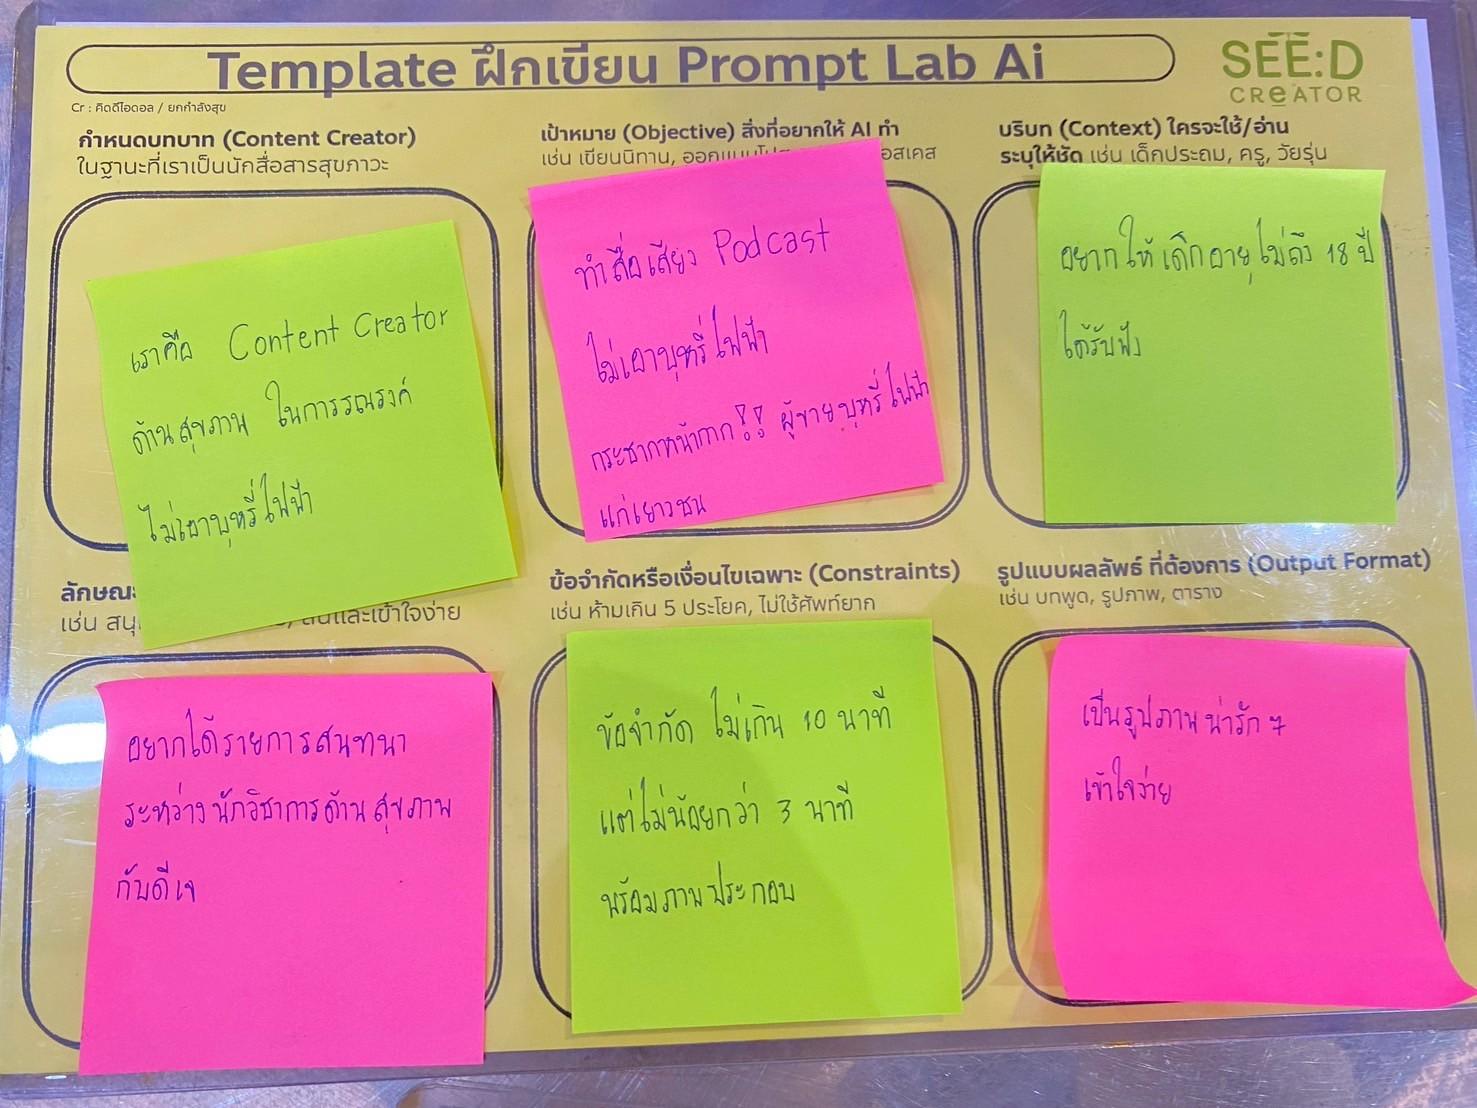 Template ฝึกเขียน Prompt Lab Ai
SEE:D
CReATOR
Cr : คิดดีไอดอล / ยกกำลังสุข
กำหนดบทบาท (Content Creator)
ในฐานะที่เราเป็นนักสื่อสารสุขภาวะ
เราคือ Content Creator
ด้านสุขภาพ ในการรณรงค์
ไม่เอาบุหรี่ไฟฟ้า
เป้าหมาย (Objective) สิ่งที่อยากให้ AI ทำ
เช่น เขียนนิทาน, ออกแบบ
ทำสื่อเสียง Podcast
ไม่เอาบุหรี่ไฟฟ้า
กระชากหน้ากาก!! ผู้ขายบุหรี่ไฟฟ้า
แก่เยาวชน
บริบท (Context) ใครจะใช้/อ่าน
ระบุให้ชัด เช่น เด็กประถม, ครู, วัยรุ่น
อยากให้เด็กอายุไม่ถึง 18 ปี
ได้รับฟัง
เช่น และเข้าใจง่าย
อยากได้รายการสนทนา
ระหว่างนักวิชาการด้านสุขภาพ
กับดีเจ
ข้อจำกัดหรือเงื่อนไขเฉพาะ (Constraints)
เช่น ห้ามเกิน 5 ประโยค, ไม่ใช้ศัพท์ยาก
ข้อจำกัด ไม่เกิน 10 นาที
แต่ไม่น้อยกว่า 3 นาที
พร้อมภาพประกอบ
รูปแบบผลลัพธ์ ที่ต้องการ (Output Format)
เช่น บทพูด, รูปภาพ, ตาราง
เป็นรูปภาพน่ารักๆ
เข้าใจง่าย